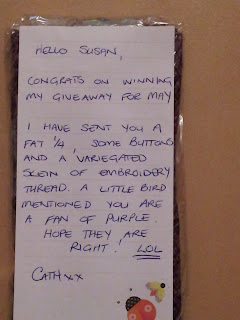 HELLO SUSAN,
CONGRATS ON WINNING
MY GIVEAWAY FOR MAY
I HAVE SENT YOU A
FAT 1/4, SOME BUTTONS
AND A VARIEGATED
SKEIN OF EMBROIDERY
THREAD. A LITTLE BIRD
MENTIONED YOU ARE
A FAN OF PURPLE.
HOPE THEY ARE
RIGHT! LOL
CATH xx